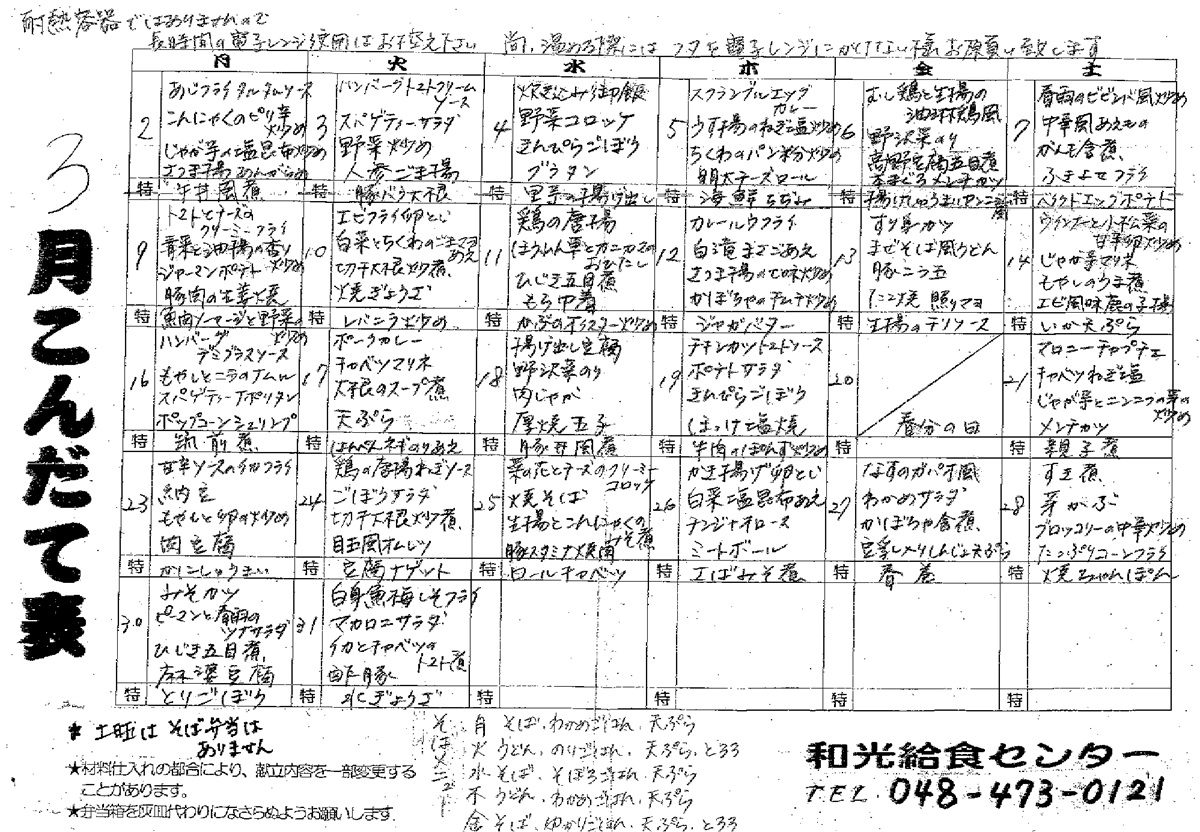 耐熱容器ではありませんので
長時間の電子レンジ使用はお控え下さい 尚、温める際にはフタを電子レンジにかけない様お願い致します
3月こんだて表
月 火 水 木 金 土
2
あじフライタルタルソース
こんにゃくのピリ辛炒め
じゃが芋の塩昆布炒め
さつま揚あんがらめ
特 牛丼風煮
3
ハンバーグトマトクリームソース
スパゲティーサラダ
野菜炒め
人参ごま揚
特 豚バラ大根
4
炊き込み御飯
野菜コロッケ
きんぴらごぼう
グラタン
特 里芋の揚げ出し
5
スクランブルエッグカレー
うす揚のねぎ塩炒め
ちくわのパン粉炒め
明太チーズロール
特 海鮮ちぢみ
6
むし鶏と生揚の油淋鶏風
野沢菜のり
高野豆腐五目煮
本まぐろメンチカツ
特
7
春雨のビビンバ風炒め
中華風あえもの
がんも含煮
ふきよせフライ
特 ベイクドエッグポテト
9
トマトとチーズのクリーミーフライ
青菜と油揚の香り炒め
ジャーマンポテト
豚肉の生姜焼
特 魚肉ソーセージと野菜の炒め
10
エビフライ卵とじ
白菜とちくわのごまマヨあえ
切干大根炒煮
焼ぎょうざ
特 レバニラ炒め
11
鶏の唐揚
ほうれん草とカニカマのおひたし
ひじき五目煮
もち巾着
特 かぶのオイスター炒め
12
カレールウフライ
白滝まさごあえ
さつま揚のごま味炒め
かぼちゃのキムチ炒め
特 ジャガバター
13
すり身カツ
まぜそば風うどん
豚ニラ玉
たこ焼 照りマヨ
特 生揚のチリソース
14
ウインナーと小松菜の甘辛卵炒め
じゃが芋マリネ
もやしのうま煮
エビ風味鹿の子揚
特 いか天ぷら
16
ハンバーグデミグラスソース
もやしとニラのナムル
スパゲティーナポリタン
ポップコーンシュリンプ
特 筑前煮
17
ポークカレー
キャベツマリネ
大根のスープ煮
天ぷら
特 はんぺんネギのりあえ
18
揚げ出し豆腐
野沢菜のり
肉じゃが
厚焼玉子
特 豚丼風煮
19
チキンカツトマトソース
ポテトサラダ
きんぴらごぼう
ほっけ塩焼
特 牛肉のぽんず炒め
20
春分の日
特
21
マロニーチャプチェ
キャベツねぎ塩
じゃが芋とニンニクの芽の炒め
メンチカツ
特 親子煮
23
甘辛ソースのイカフライ
納豆
もやしと卵の炒め
肉豆腐
特 かにしゅうまい
24
鶏の唐揚ねぎソース
ごぼうサラダ
切干大根炒煮
目玉風オムレツ
特 豆腐ナゲット
25
菜の花とチーズのクリーミーコロッケ
焼そば
生揚とこんにゃくのみそ煮
豚スタミナ焼肉
特 ロールキャベツ
26
かき揚げ卵とじ
白菜塩昆布あえ
チンジャオロース
ミートボール
特 さばみそ煮
27
なすのガパオ風
わかめサラダ
かぼちゃ含煮
豆乳入りしんじょ天ぷら
特 春巻
28
すき煮
芽かぶ
ブロッコリーの中華炒め
たっぷりコーンフライ
特 焼ちゃんぽん
30
みそカツ
ピーマンと春雨のツナサラダ
ひじき五目煮
麻婆豆腐
特 とりごぼう
31
白身魚梅しそフライ
マカロニサラダ
イカとキャベツのトマト煮
酢豚
特 水ぎょうざ
特
特
特
特
* 土曜はそば弁当はありません
★材料仕入れの都合により、献立内容を一部変更することがあります。
★弁当箱を灰皿代わりになさらぬようお願いします。
そばメニュー
月 そば、わかめごはん、天ぷら
火 うどん、のりごはん、天ぷら、とろろ
水 そば、そぼろごはん、天ぷら
木 うどん、わかめごはん、天ぷら
金 そば、ゆかりごはん、天ぷら、とろろ
和光給食センター
TEL 048-473-0121